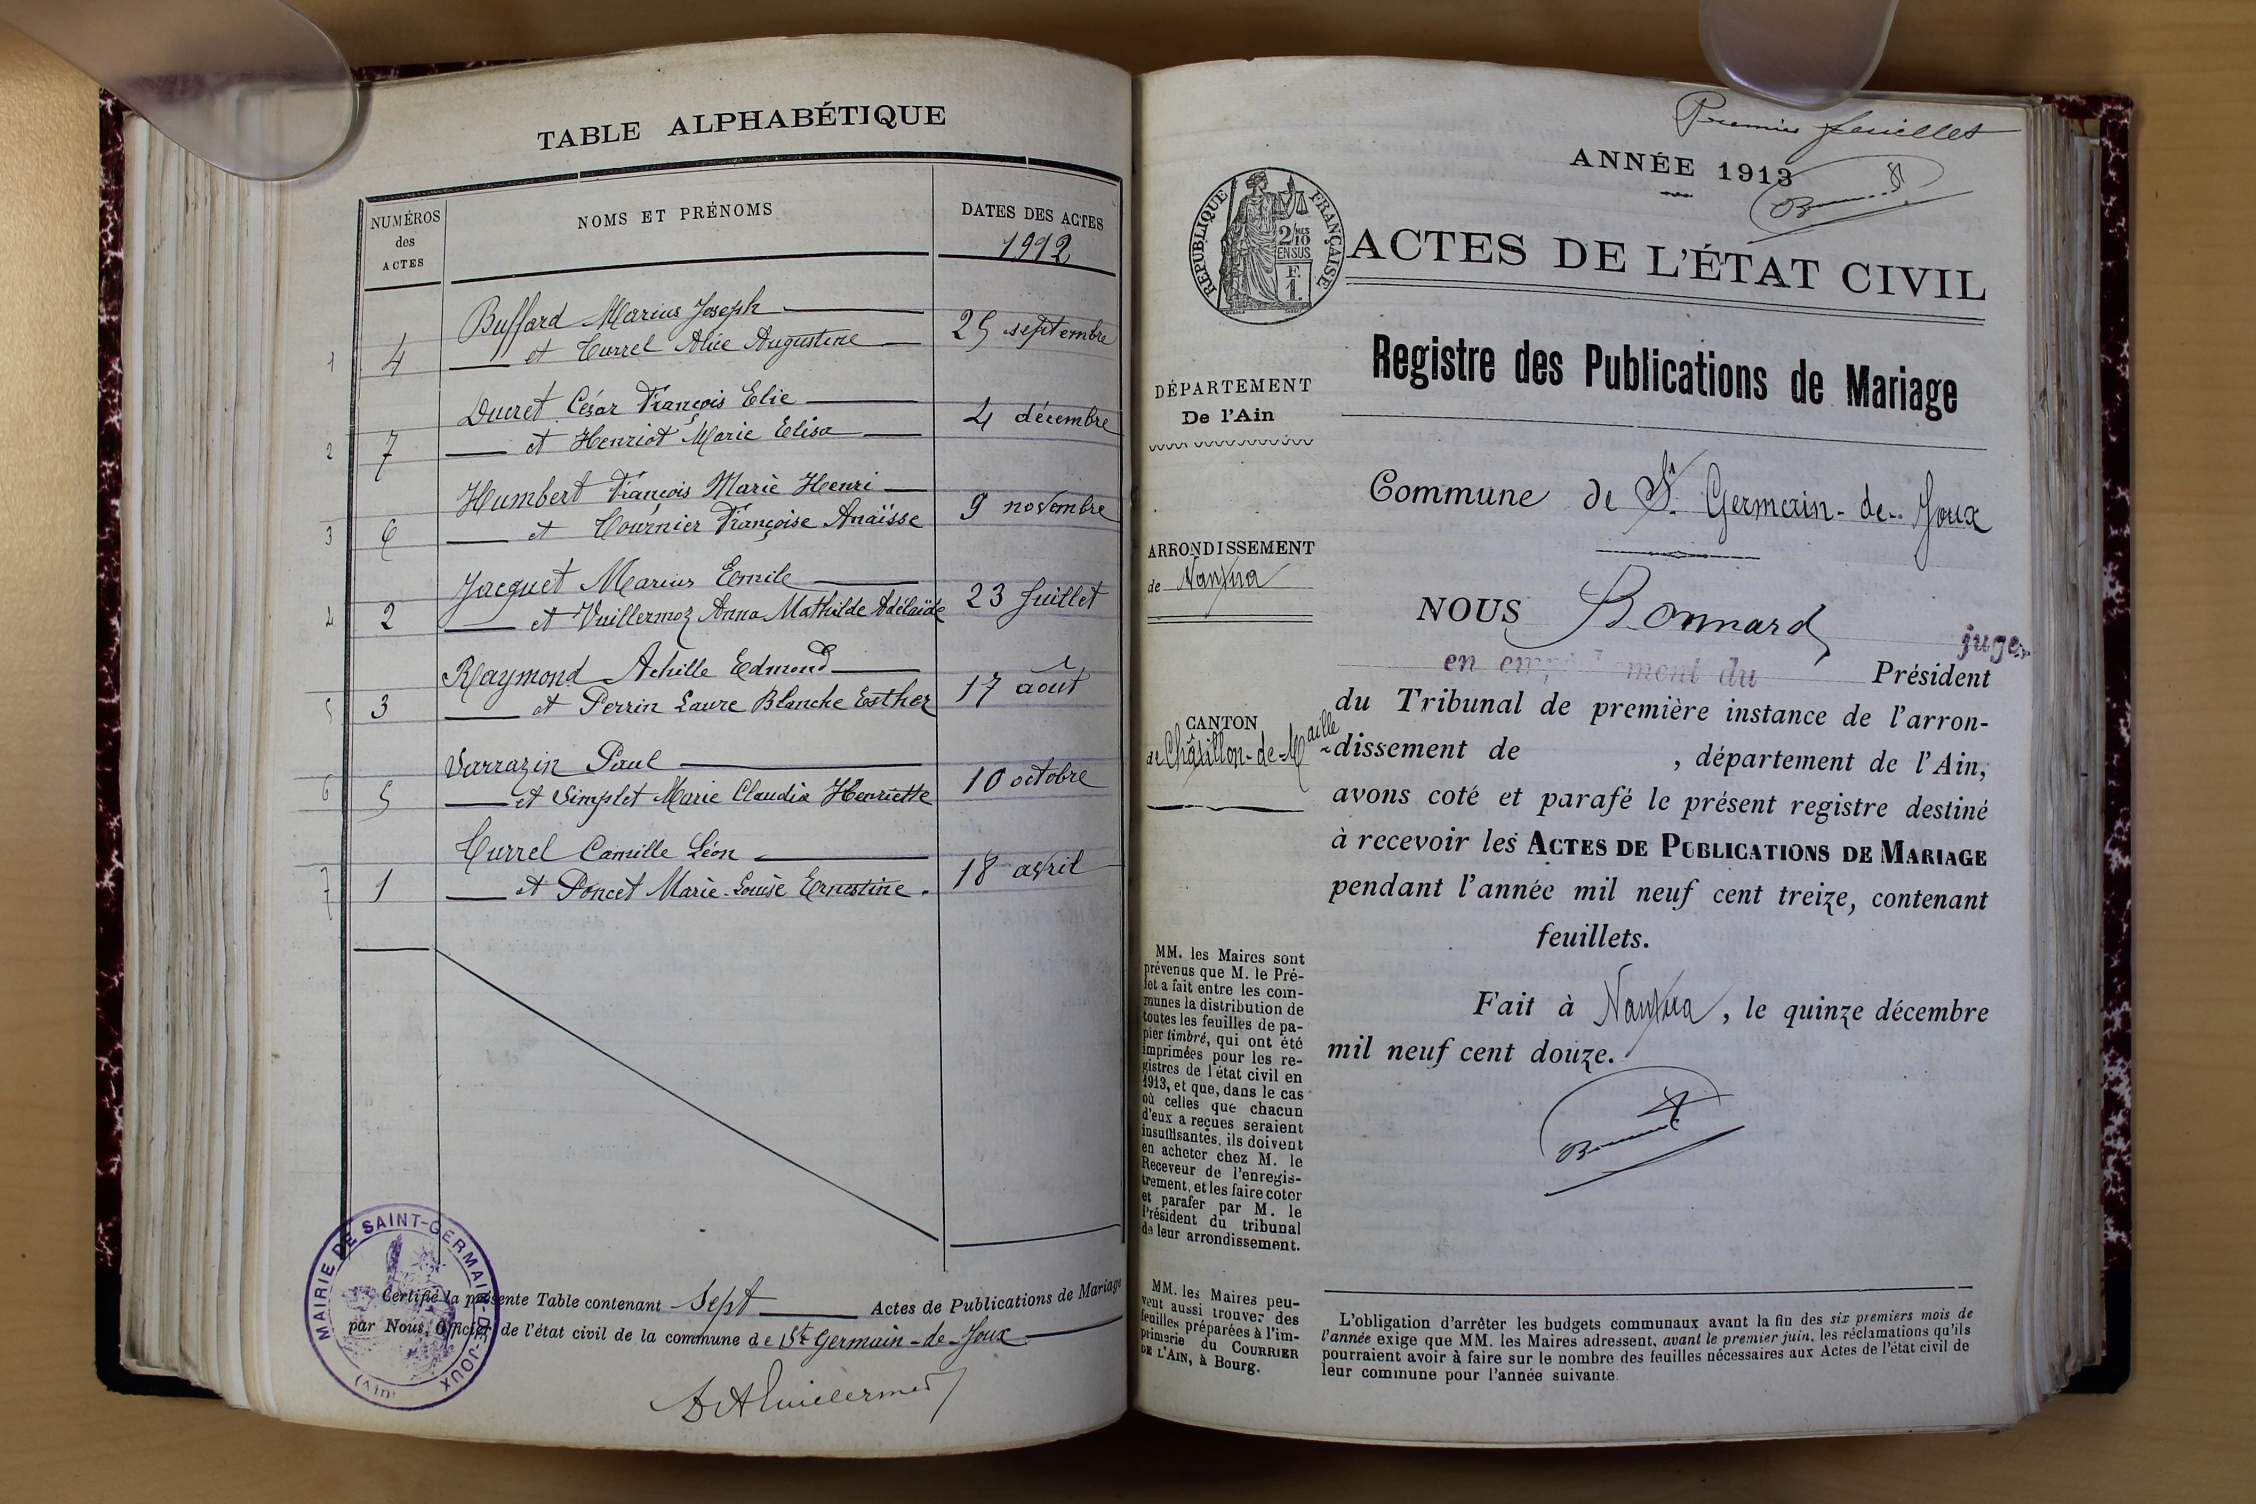 TABLE ALPHABÉTIQUE
NUMÉROS
des
ACTES
NOMS ET PRÉNOMS
DATES DES ACTES
1912
1 4 Buffard Marius Joseph
et Turrel Alice Augustine 25 septembre
2 7 Ducret César François Elie
et Henriot Marie Elisa 4 décembre
3 6 Humbert François Marie Henri
et Tournier Françoise Anaïsse 9 novembre
4 2 Jacquet Marius Emile
et Vuillermoz Anna Mathilde Adélaïde 23 Juillet
5 3 Raymond Achille Edmond
et Perrin Laure Blanche Esther 17 août
6 5 Sarrazin Paul
et Simplet Marie Claudia Henriette 10 octobre
7 1 Turrel Camille Léon
et Poncet Marie-Louise Ernestine. 18 avril
Certifié la présente Table contenant sept Actes de Publications de Mariage
par Nous, Officier de l'état civil de la commune de St Germain-de-Joux
MAIRIE DE SAINT-GERMAIN-DE-JOUX
(AIN)
Premier feuillet
ANNÉE 1913
RÉPUBLIQUE FRANÇAISE
2/10
EN SUS
F.
1.
ACTES DE L'ÉTAT CIVIL
Registre des Publications de Mariage
DÉPARTEMENT
De l'Ain
Commune de St. Germain-de-Joux
ARRONDISSEMENT
de Nantua
CANTON
de Châtillon-de-Maille
NOUS Bonnard juge
en empêchement du Président
du Tribunal de première instance de l'arron-
dissement de , département de l'Ain,
avons coté et parafé le présent registre destiné
à recevoir les ACTES DE PUBLICATIONS DE MARIAGE
pendant l'année mil neuf cent treize, contenant
feuillets.
Fait à Nantua, le quinze décembre
mil neuf cent douze.
MM. les Maires sont
prévenus que M. le Pré-
fet a fait entre les com-
munes la distribution de
toutes les feuilles de pa-
pier timbré, qui ont été
imprimées pour les re-
gistres de l'état civil en
1913, et que, dans le cas
où celles que chacun
d'eux a reçues seraient
insuffisantes, ils doivent
en acheter chez M. le
Receveur de l'enregis-
trement, et les faire coter
et parafer par M. le
Président du tribunal
de leur arrondissement.
MM. les Maires peu-
vent aussi trouver des
feuilles préparées à l'im-
primerie du COURRIER
DE L'AIN, à Bourg.
L'obligation d'arrêter les budgets communaux avant la fin des six premiers mois de
l'année exige que MM. les Maires adressent, avant le premier juin, les réclamations qu'ils
pourraient avoir à faire sur le nombre des feuilles nécessaires aux Actes de l'état civil de
leur commune pour l'année suivante.